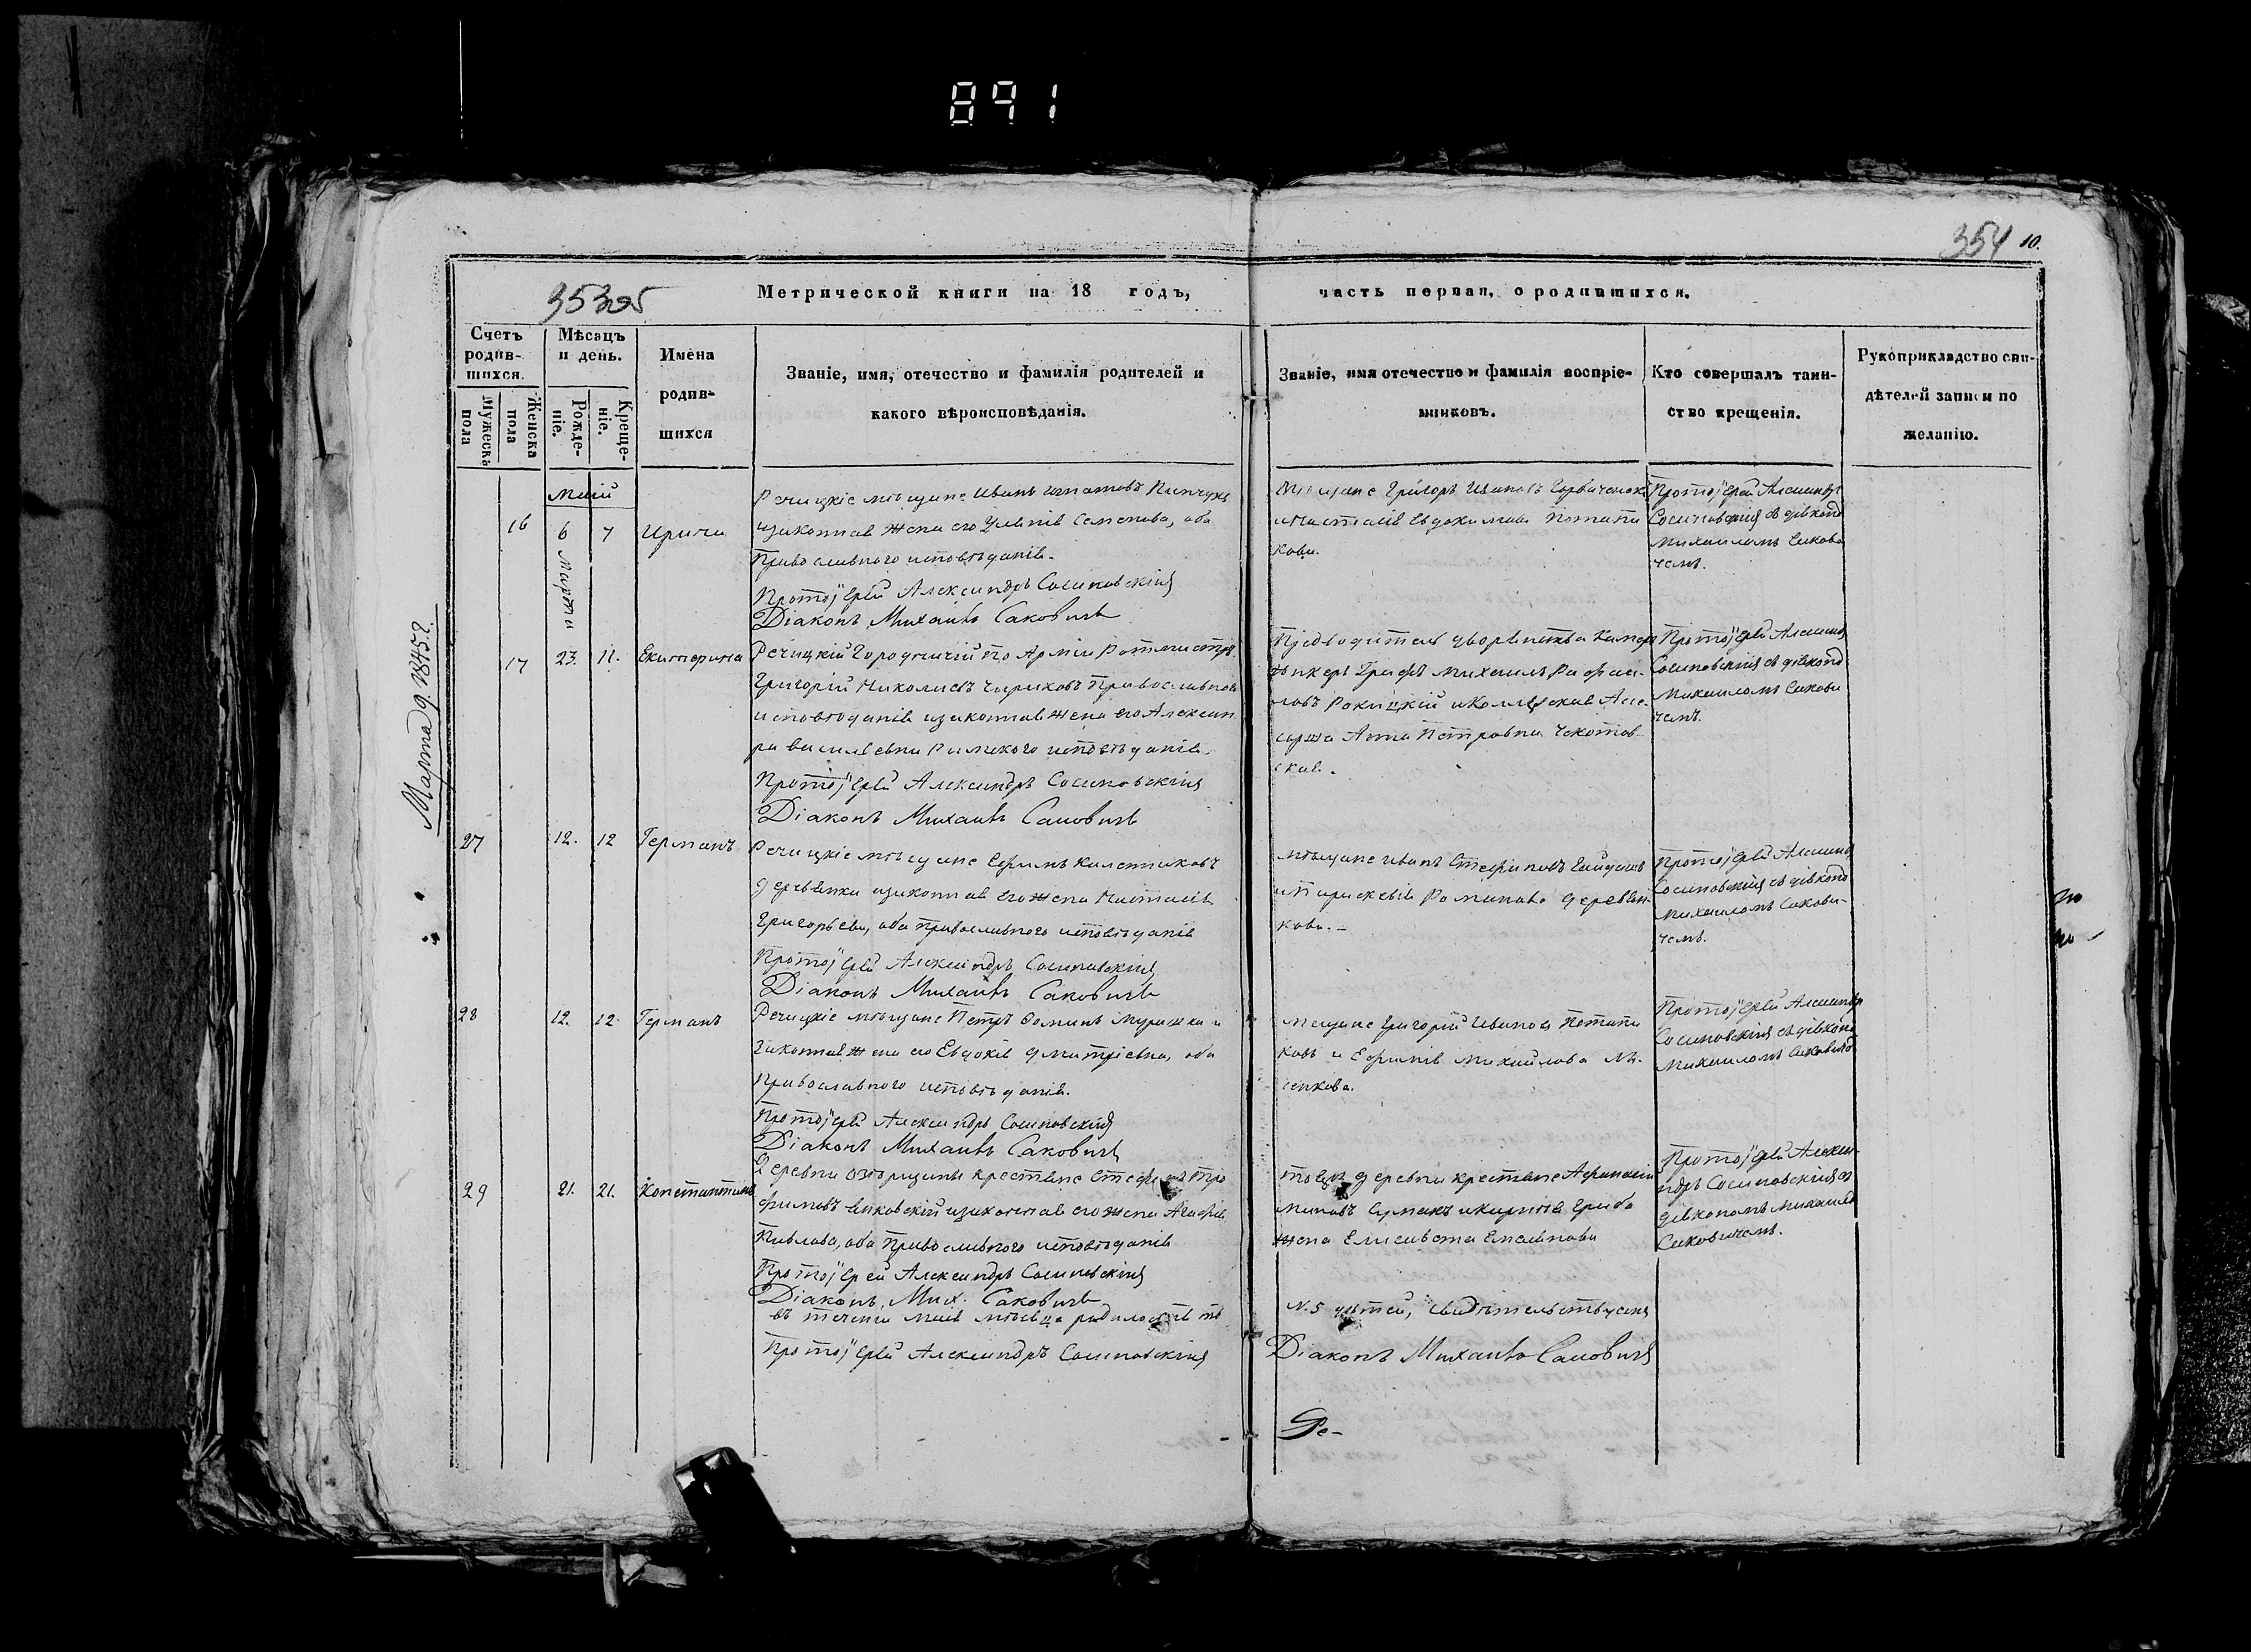 891
354 10.
353об
Метрической книги на 18 годъ, часть первая, о родившихся.
Счетъ родив-
шихся.
Мужеска пола
Женска пола
Мѣсяцъ и день.
Рожде-
ніе.
Креще-
ніе.
Имена
родив-
шихся
Званіе, имя, отечество и фамилія родителей и
какого вѣроисповѣданія.
Званіе, имя отечество и фамилія воспріе-
мниковъ.
Кто совершалъ таин-
ство крещенія.
Рукоприкладство сви-
дѣтелей записи по
желанію.
Марта 9. 1845 г.
Маій
16 6 7 Ирина
Речицкіе мѣщане Иванъ Игнатовъ
изаконная жена его Уліянія Семенова, оба
Православного исповѣданія.
Протоіерей Александръ Сосиновскій
Діаконъ Михаилъ Саковичъ
Мѣщане Григорь Ивановъ
иНасталія Евдокимова Потапи
кова.
Протоіерей Александръ
Сосиновскій съ діаконо
Михаиломъ Сакови
чемъ.
Марта
17 23. 11. Екатерина
Речицкій Городничій по Арміи Ротмистръ
Григорій Николаевъ Чириковъ Православного
исповѣданія изаконная жена его Алексан
ра Васильевна Римского исповѣданія.
Протоіерей Александръ Сосиновскій
Діаконъ Михаилъ Саковичъ
Предводитель дворянства Камеръ
Юнкеръ Графъ Михаилъ Рафаи-
ловъ Ракицкій иКоллежская Ассе-
сорша Анна Петровна Чекотов-
ская.
Протоіерей Алексан
Сосиновскій съ діаконо
Михаиломъ Сакови
чемъ.
27 12. 12 Германъ
Речицкіе мѣщане Ефимъ Калетниковъ
Деревянка изаконная его жена Наталія
Григорьева, оба православного исповѣданія
Протоіерей Александръ Сосиновскій
Діаконъ Михаилъ Саковичъ
мѣщане Иванъ Стефановъ Гайдашъ
иПараскевія Романова Деревян
кова.-
Протоіерей Алексан
Сосиновскій съ діаконо
Михаиломъ Сакови-
чемъ.
28 12. 12. Германъ
Речицкіе мѣщане Петръ Фоминъ Мурашка и
Законная жена его Евдокія Дмитріевна, оба
Православного исповѣданія.
Протоіерей Александръ Сосиновскій
Діаконъ Михаилъ Саковичъ
мещане Григорій Ивановъ Потапи
ковъ и Ефимія Михайлова
Протоіерей Александр
Сосиновскій съ діаконо
Михаиломъ Саковичо
29 21. 21. Константинъ
Деревни Озерщины крестьяне Стефанъ Тро
фимовъ изаконная его жена Агафія
Павлова, оба Православного исповѣданія
Протоіерей Александръ Сосиновскій
Діаконъ, Мих. Саковичъ
Тоея деревни крестьяне Афанасій
жена Елисавета Емельянова
Протоіерей Алексан-
дръ Сосиновскій съ
діакономъ Михаило
Саковичемъ.
въ теченіи маія мѣсяца родилось
N. 5 дѣтей, свидѣтельствуемъ
Протоіерей Александръ Сосиновскій
Діаконъ Михаилъ Саковичъ
Ре-